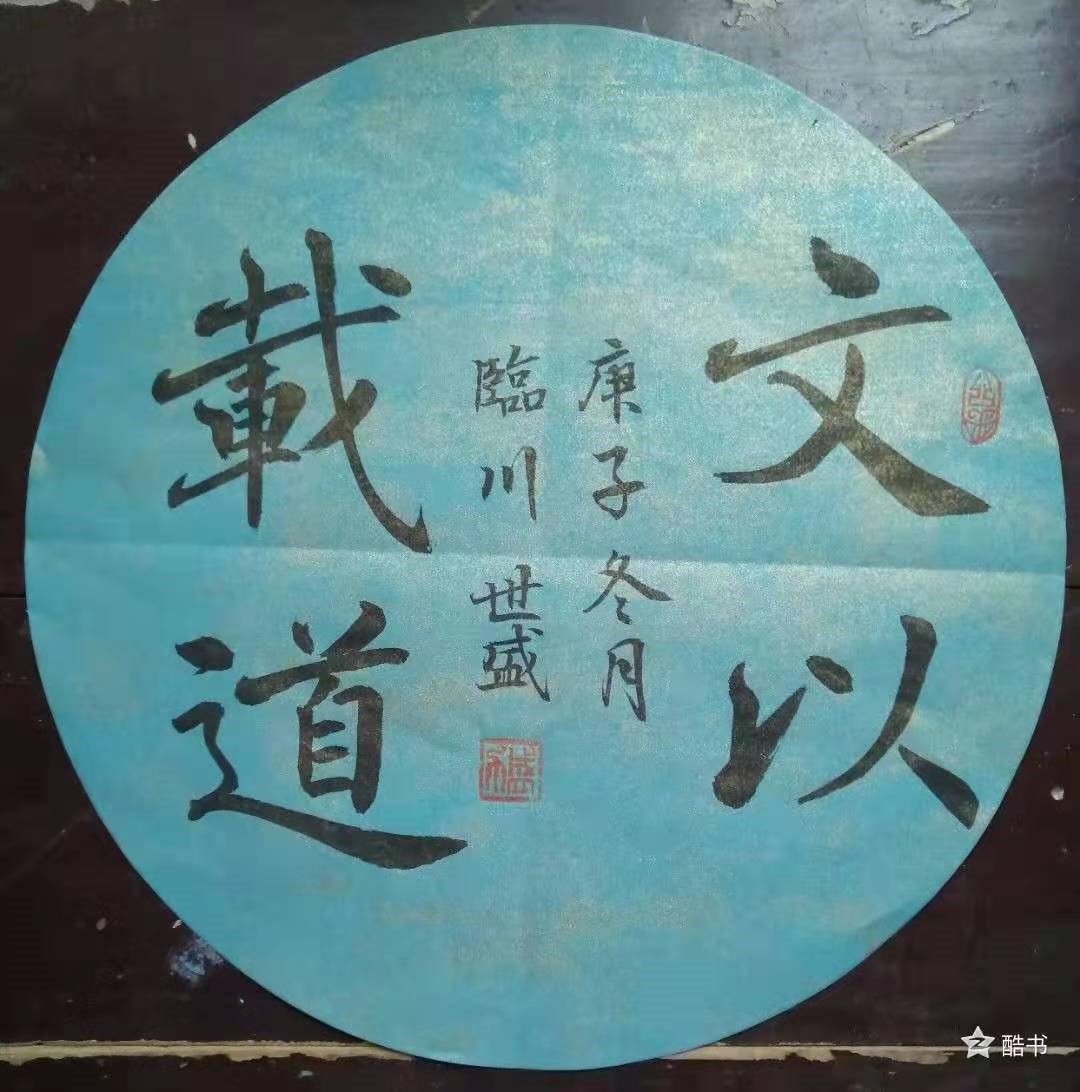 文以
庚子冬月
臨川世盛
載道
酷书